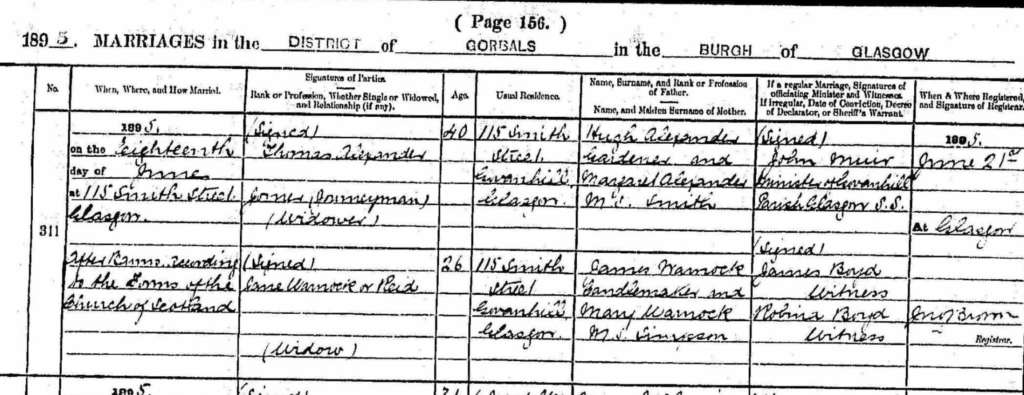 ( Page 156. )
1895. MARRIAGES in the DISTRICT of GORBALS in the BURGH of GLASGOW
No.
When, Where, and How Married.
Signatures of Parties.
Rank or Profession, Whether Single or Widowed, and Relationship (if any).
Age.
Usual Residence.
Name, Surname, and Rank or Profession of Father.
Name, and Maiden Surname of Mother.
If a regular Marriage, Signatures of officiating Minister and Witnesses.
If irregular, Date of Conviction, Decree of Declarator, or Sheriff's Warrant.
When & Where Registered, and Signature of Registrar.
311
1895.
on the Eighteenth
day of June
at 115 Smith Street
Glasgow.
After Banns according
to the Forms of the
Church of Scotland
(Signed)
Thomas Alexander
Joiner (Journeyman)
(Widower)
(Signed)
Jane Warnock or Reid
(Widow)
40
26
115 Smith
Street
Govanhill
Glasgow.
115 Smith
Street
Govanhill
Glasgow
Hugh Alexander
Gardener and
Margaret Alexander
M.S. Smith
James Warnock
Candlemaker and
Mary Warnock
M.S. Simpson
(Signed)
John Muir
Minister of Govanhill
Parish Glasgow
(Signed)
James Boyd
Witness
Robina Boyd
Witness
1895.
June 21st
At Glasgow
Jno Brown
Registrar.
1895.